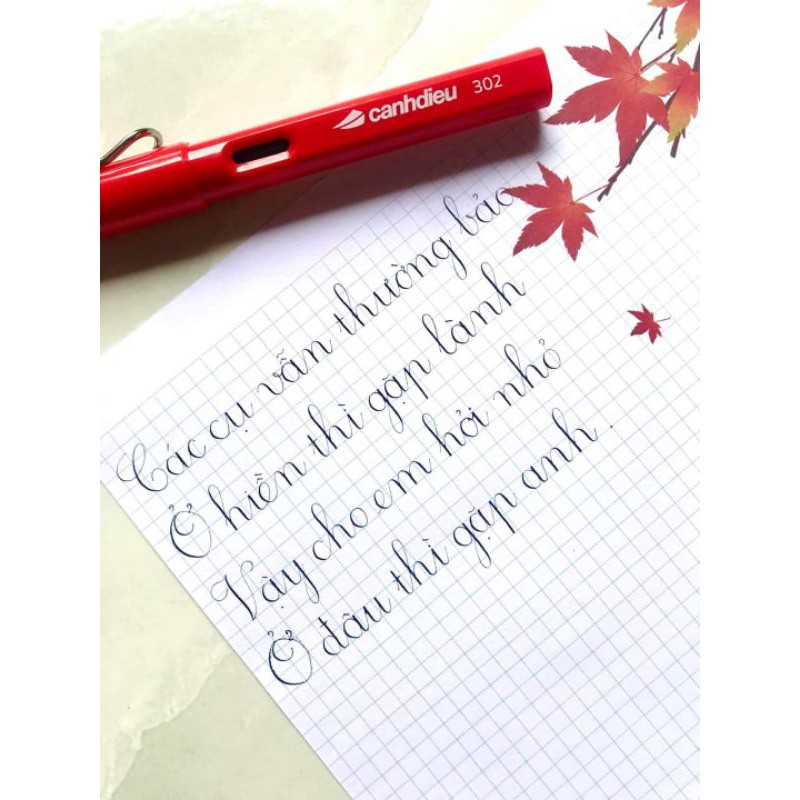 canhdieu 302
Các cụ vẫn thường bảo
Ở hiền thì gặp lành
Vậy cho em hỏi nhỏ
Ở đâu thì gặp anh .